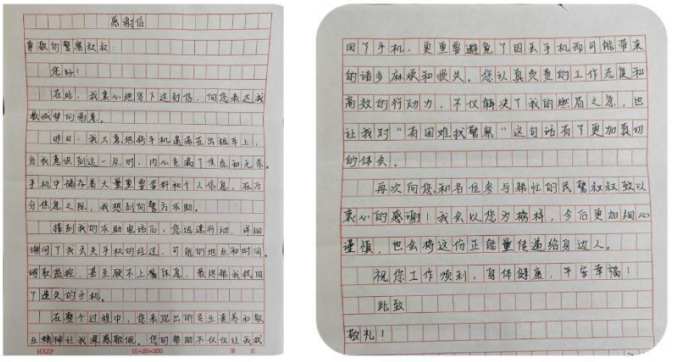 感谢信
尊敬的警察叔叔:
您好!
在此,我衷心地写下这封信,向您表达我
最诚挚的谢意。
昨日,我不慎将手机遗落在出租车上,
当我意识到这一点时,内心充满了焦急和无奈。
手机中储存着大量重要资料和个人信息,在万
分焦急之际,我想到向警方求助。
接到我的求助电话后,您迅速行动,详细
询问了我丢失手机的经过,可能的地点和时间,
调取监控,甚至顾不上喝休息,最终帮我找回
了遗失的手机。
在整个过程中,您表现出的专业素养和敬
业精神让我深感敬佩。您的帮助不仅仅让我找
回了手机,更重要避免了因丢手机而可能带来
的诸多麻烦和损失。您认真负责的工作态度和
高效的行动力,不仅解决了我的燃眉之急,也
让我对“有困难找警察”这句话有了更加真切
的体会。
再次向您和各位参与帮忙的民警叔叔致以
衷心的感谢!我会以您为榜样,今后更加细心
谨慎,也会将这份正能量传递给身边人。
祝您工作顺利,身体健康,平安幸福!
此致
敬礼!